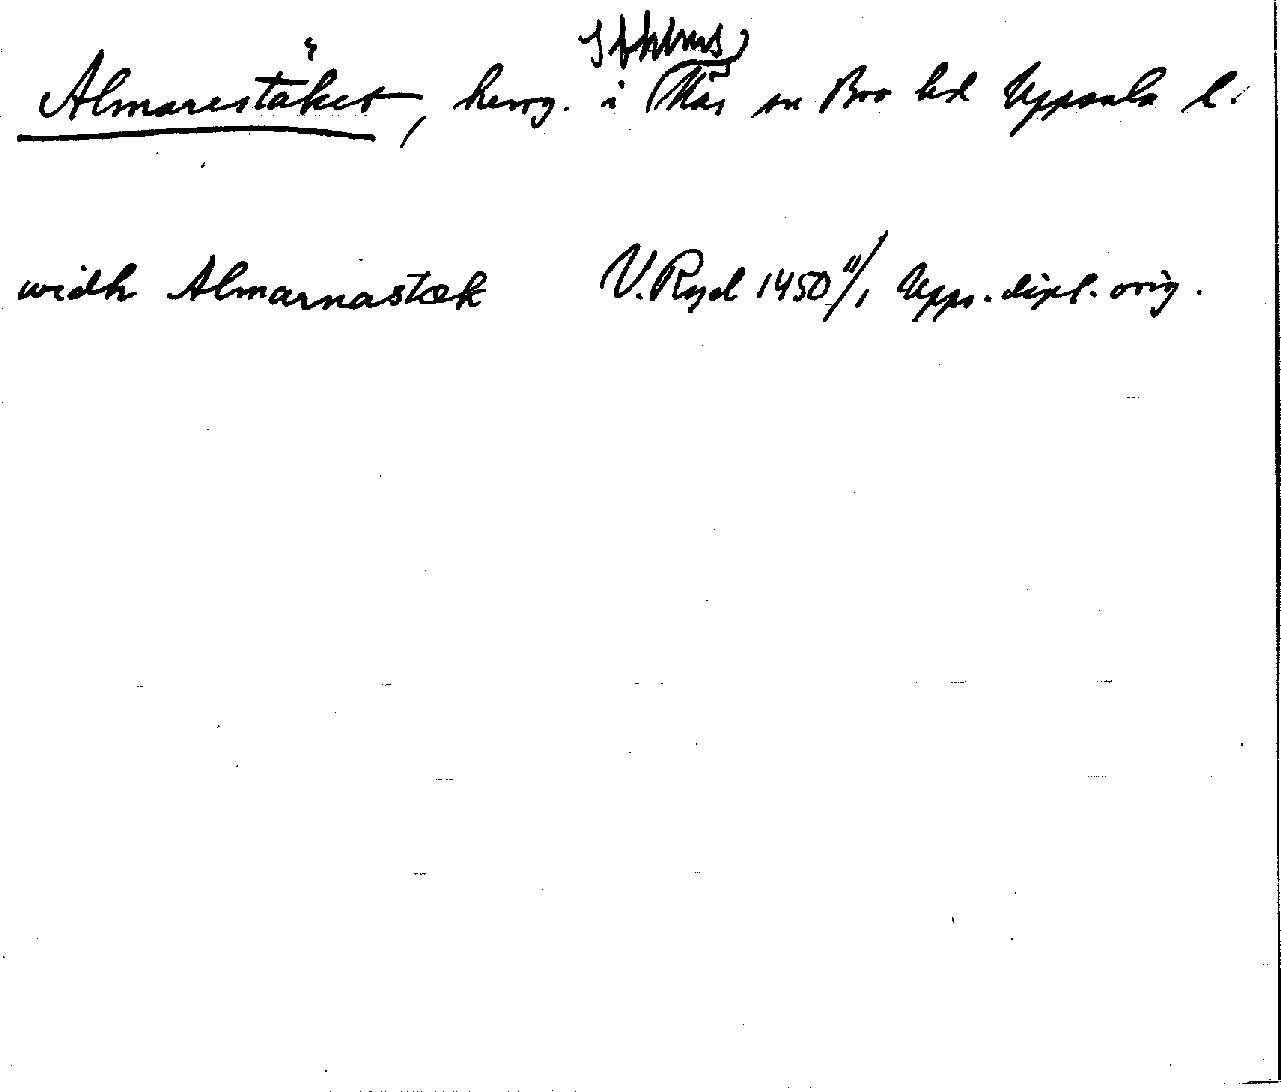 Sthlms
Almarestäket, herrg. i Näs sn Bro hd Uppsala l.
widh Almarnastæk V. Ryd 1450 11/1 Upps. dipl. orig.